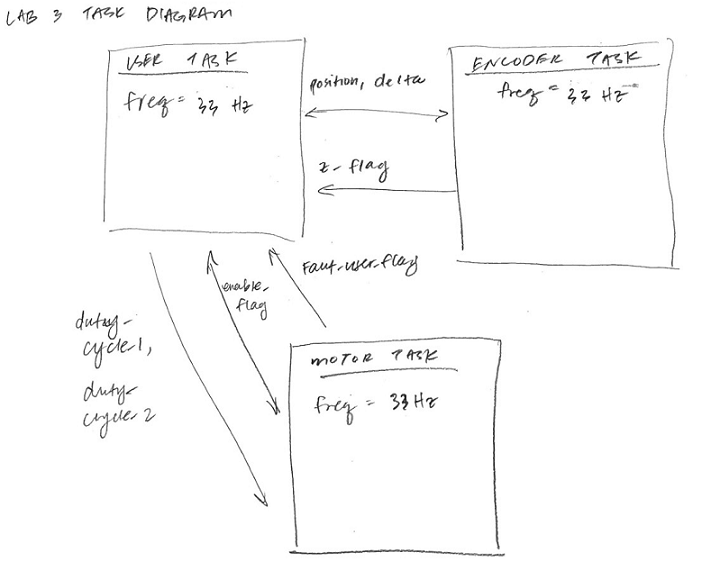 LAB 3 TASK DIAGRAM
USER TASK
freq = 33 Hz
position, delta
ENCODER TASK
freq = 33 Hz
z-flag
enable-
flag
Faut-user-flag
duty-
cycle-1,
duty-
cycle-2
MOTOR TASK
freq = 33 Hz